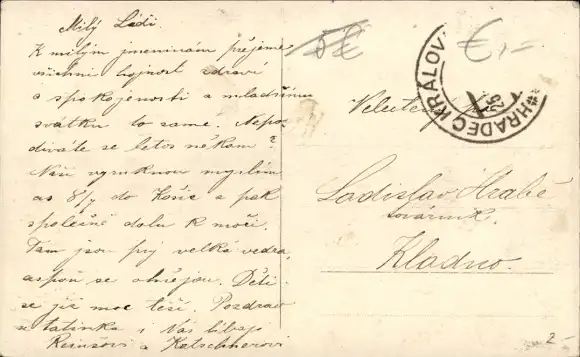 Milý Ládi.
K milým jmeninám přejeme
všichni hojnost zdraví
a spokojenosti a mladšímu
svátku to samé. Nepo-
díváte se letos někam?
Naši vyruknou myslím
as 8/7 do Košic a pak
společně dolu k moři.
Tam jsou prý velká vedra,
aspoň se ohřejou. Děti
se již moc těší. Pozdrav
u tatínka i Vás líbají
a Katschnerovi
5€
€,-
HRADEC KRÁLOV
Velectěný pán
Ladislav Hrabě
továrník
Kladno.
2-